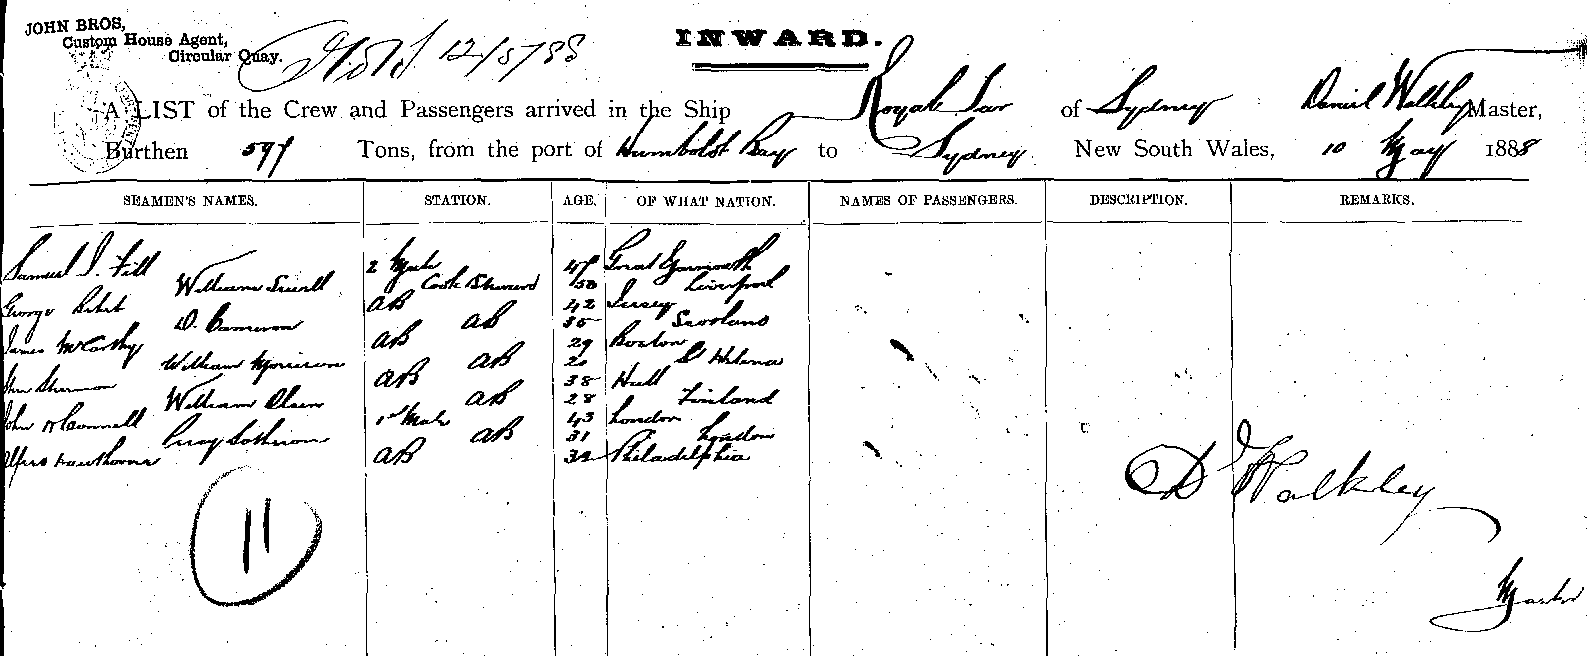 JOHN BROS,
Custom House Agent,
Circular Quay.
12/5/88
INWARD.
A LIST of the Crew and Passengers arrived in the Ship Royal Tar of Sydney Daniel Walkley Master,
Burthen 597 Tons, from the port of Humboldt Bay to Sydney New South Wales, 10 May 1888
SEAMEN'S NAMES. STATION. AGE. OF WHAT NATION. NAMES OF PASSENGERS. DESCRIPTION. REMARKS.
Samuel I. Fill 2 Mate 47 Great Yarmouth
William Sewell Cook Steward 50 Liverpool
George AB 42 Jersey
D. Cameron AB 35 Scotland
James McCarthy AB 29 Boston
William Morrison AB 21 St Helena
John Sherman AB 38 Hull
William Olsen AB 28 Finland
John O'Connell 1st Mate 43 London
Percy Sotheron AB 31 London
Alfred Hawthorne AB 32 Philadelphia
11
D Walkley
Master